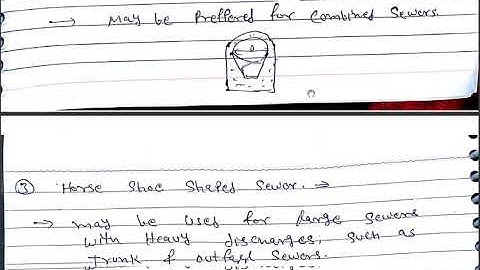 → May be Preffered for Combined Sewers.
③ Horse Shoe Shaped Sewer. ⇒
→ may be used for large sewers
with Heavy discharges, such as
Trunk & outfall Sewers.